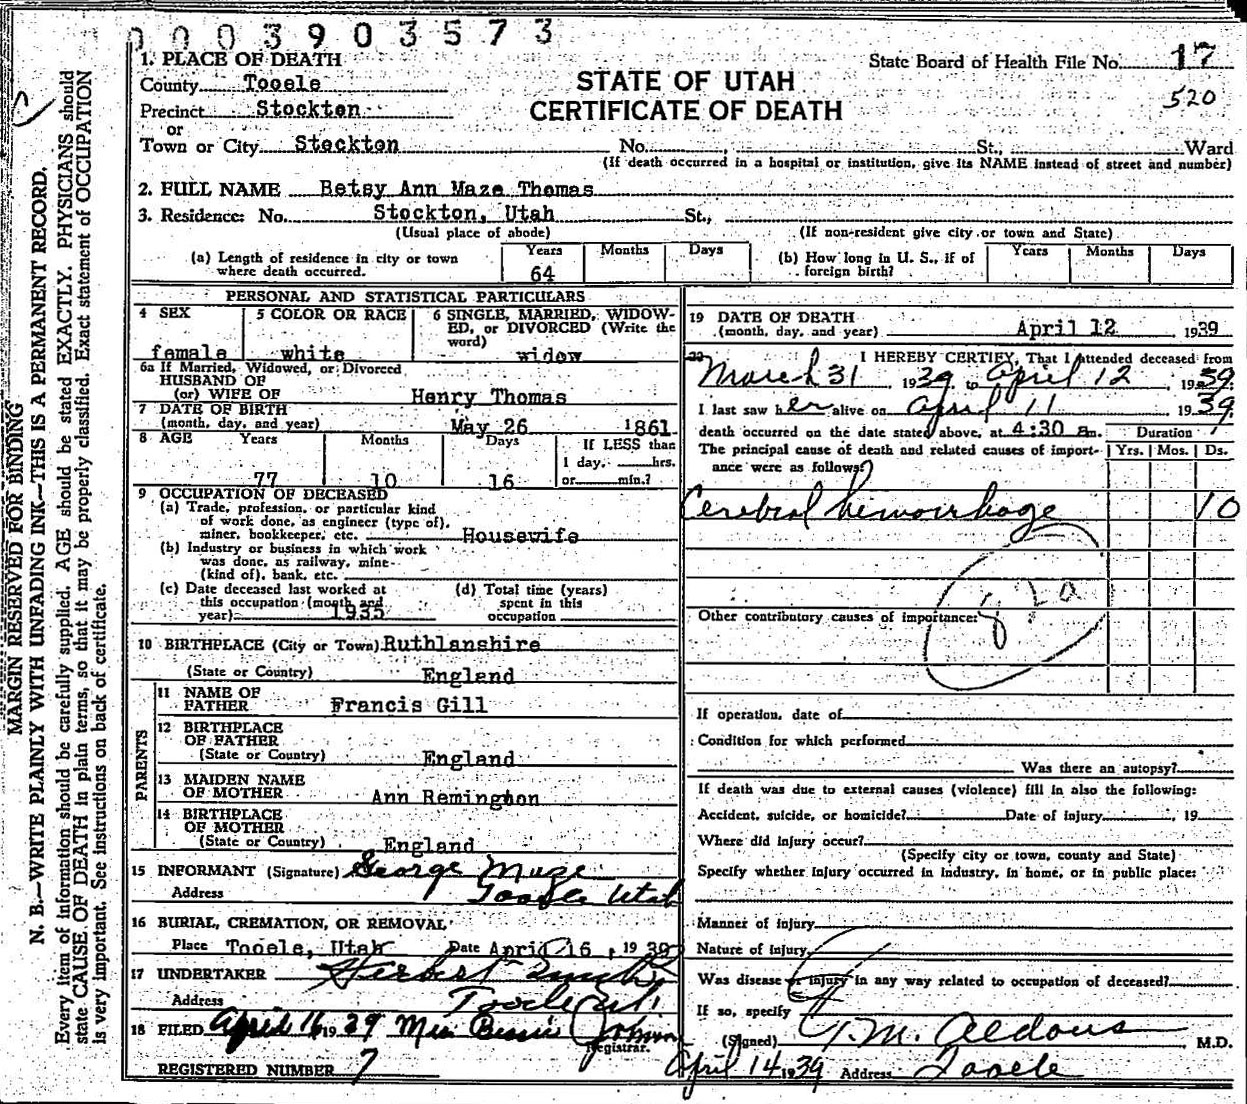 0003903573
State Board of Health File No. 17
520
STATE OF UTAH
CERTIFICATE OF DEATH
1. PLACE OF DEATH
County Tooele
Precinct Stockton
or
Town or City Stockton No. , St., Ward
(If death occurred in a hospital or institution, give its NAME instead of street and number)
2. FULL NAME Betsy Ann Maze Thomas
3. Residence: No. Stockton, Utah St.,
(Usual place of abode) (If non-resident give city or town and State)
(a) Length of residence in city or town where death occurred. Years 64 Months Days
(b) How long in U. S., if of foreign birth? Years Months Days
PERSONAL AND STATISTICAL PARTICULARS
4 SEX female
5 COLOR OR RACE white
6 SINGLE, MARRIED, WIDOW-
ED, or DIVORCED (Write the
word) widow
6a If Married, Widowed, or Divorced
HUSBAND OF
(or) WIFE OF Henry Thomas
7 DATE OF BIRTH
(month, day, and year) May 26 1861
8 AGE Years 77 Months 10 Days 16 If LESS than
1 day, hrs.
or min.?
9 OCCUPATION OF DECEASED
(a) Trade, profession, or particular kind
of work done, as engineer (type of),
miner, bookkeeper, etc. Housewife
(b) Industry or business in which work
was done, as railway, mine
(kind of), bank, etc.
(c) Date deceased last worked at
this occupation (month and
year) 1935
(d) Total time (years)
spent in this
occupation
10 BIRTHPLACE (City or Town) Ruthlanshire
(State or Country) England
PARENTS
11 NAME OF
FATHER Francis Gill
12 BIRTHPLACE
OF FATHER
(State or Country) England
13 MAIDEN NAME
OF MOTHER Ann Remington
14 BIRTHPLACE
OF MOTHER
(State or Country) England
15 INFORMANT (Signature) George Maze
Address Tooele Utah
16 BURIAL, CREMATION, OR REMOVAL
Place Tooele, Utah Date April 16, 1939
17 UNDERTAKER Herbert
Address Tooele Ut.
18 FILED April 16 1939 Bessie
Registrar.
REGISTERED NUMBER 7
19 DATE OF DEATH
(month, day, and year) April 12 1939
20 I HEREBY CERTIFY, That I attended deceased from
March 31 1939 to April 12, 1939
I last saw her alive on April 11 1939
death occurred on the date stated above, at 4:30 a.m. Duration
The principal cause of death and related causes of import-
ance were as follows: Yrs. Mos. Ds.
Cerebral hemorrhage 10
82a
Other contributory causes of importance:
If operation, date of
Condition for which performed
Was there an autopsy?
If death was due to external causes (violence) fill in also the following:
Accident, suicide, or homicide? Date of injury , 19
Where did injury occur?
(Specify city or town, county and State)
Specify whether injury occurred in industry, in home, or in public place:
Manner of injury
Nature of injury
Was disease or injury in any way related to occupation of deceased?
If so, specify
(Signed) M. Aldous M.D.
April 14 1939 Address Tooele
MARGIN RESERVED FOR BINDING
N. B.—WRITE PLAINLY WITH UNFADING INK—THIS IS A PERMANENT RECORD.
Every item of information should be carefully supplied. AGE should be stated EXACTLY. PHYSICIANS should
state CAUSE OF DEATH in plain terms, so that it may be properly classified. Exact statement of OCCUPATION
is very important. See instructions on back of certificate.